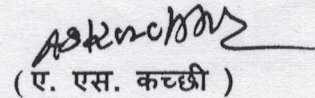 ( ए. एस. कच्छी )